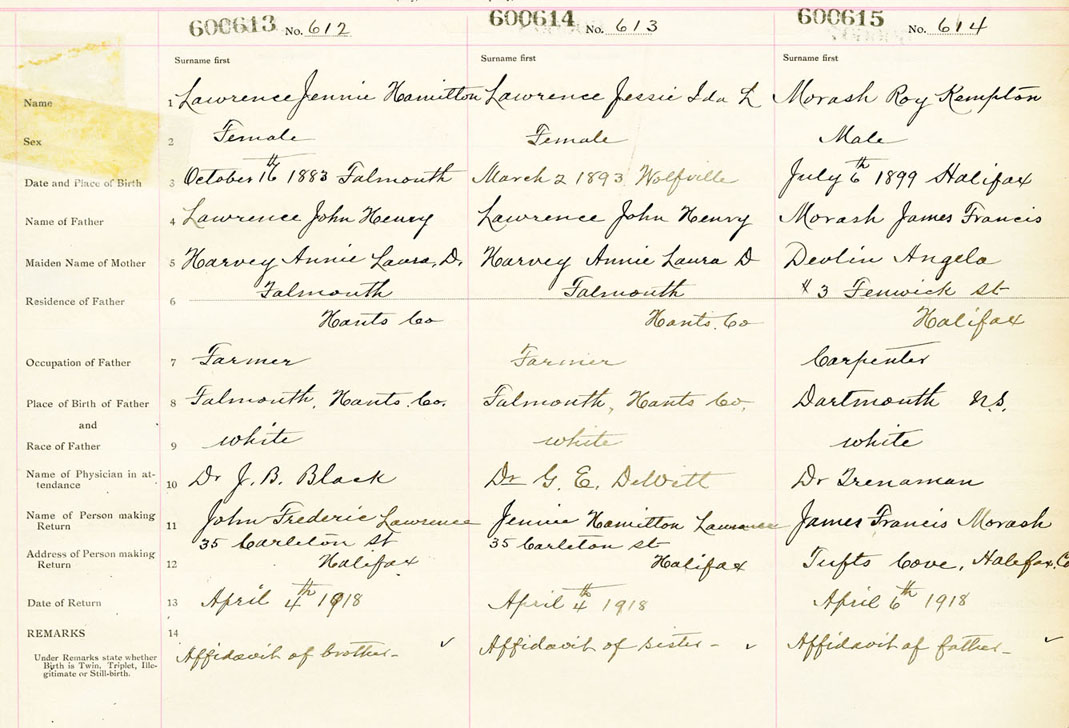 600613 No. 612 600614 No. 613 600615 No. 614
Surname first Surname first Surname first
Name 1 Lawrence Jennie Hamilton Lawrence Jessie Ida L Morash Roy Kempton
Sex 2 Female Female Male
Date and Place of Birth 3 October 16th 1883 Falmouth March 2 1893 Wolfville July 6th 1899 Halifax
Name of Father 4 Lawrence John Henry Lawrence John Henry Morash James Francis
Maiden Name of Mother 5 Harvey Annie Laura D. Harvey Annie Laura D Devlin Angela
Residence of Father 6 Falmouth Falmouth 3 Fenwick St
Hants Co Hants. Co Halifax
Occupation of Father 7 Farmer Farmer Carpenter
Place of Birth of Father 8 Falmouth, Hants. Co. Falmouth, Hants Co. Dartmouth N.S.
and
Race of Father 9 white white white
Name of Physician in at-
tendance 10 Dr J. B. Black Dr G. E. DeWitt Dr Trenaman
Name of Person making
Return 11 John Frederic Lawrence Jennie Hamilton Lawrence James Francis Morash
35 Carleton St 35 Carleton St
Address of Person making
Return 12 Halifax Halifax Tufts Cove, Halifax. Co
Date of Return 13 April 4th 1918 April 4th 1918 April 6th 1918
REMARKS 14
Affidavit of brother- ✓ Affidavit of sister- ✓ Affidavit of father- ✓
Under Remarks state whether
Birth is Twin, Triplet, Ille-
gitimate or Still-birth.